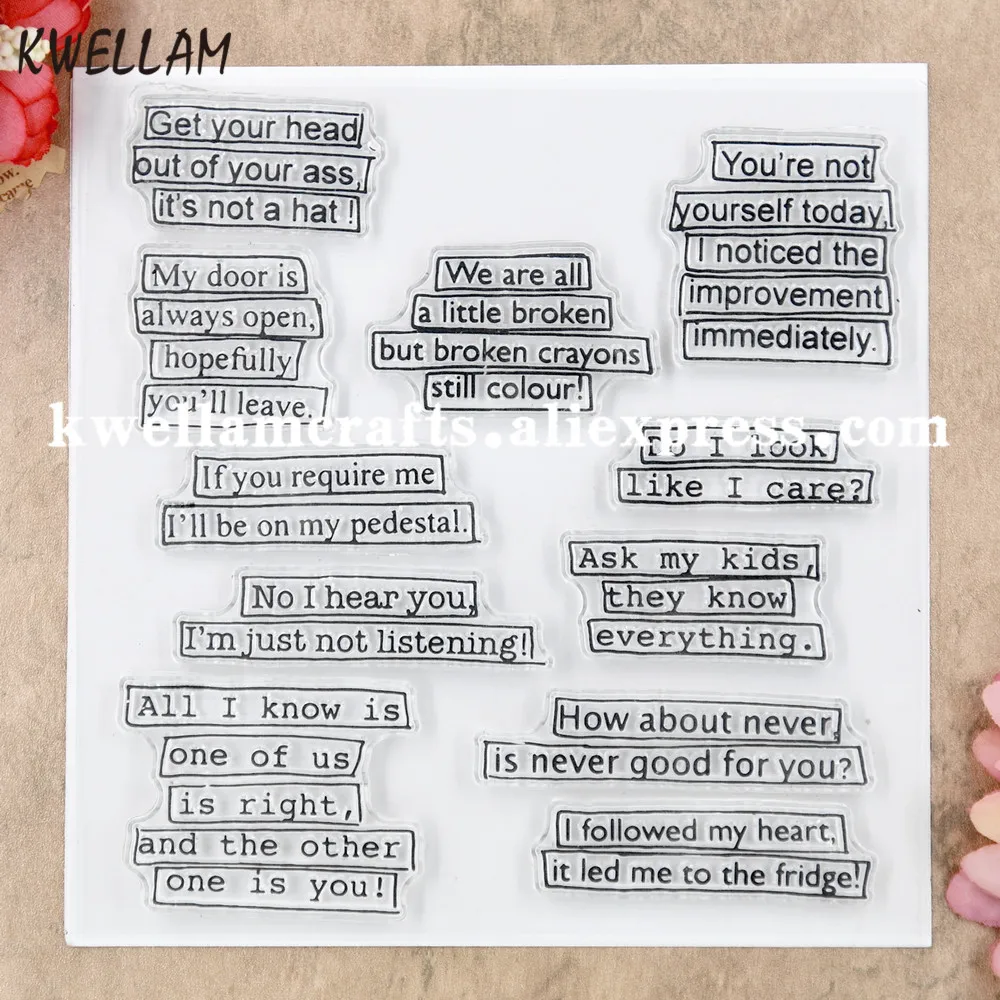 KWELLAM
Get your head
out of your ass,
it's not a hat !
You're not
yourself today,
I noticed the
improvement
immediately.
My door is
always open,
hopefully
you'll leave.
We are all
a little broken
but broken crayons
still colour!
kwellamcrafts.aliexpress.com
Do I look
like I care?
If you require me
I'll be on my pedestal.
Ask my kids,
they know
everything.
No I hear you,
I'm just not listening!
All I know is
one of us
is right,
and the other
one is you!
How about never,
is never good for you?
I followed my heart,
it led me to the fridge!